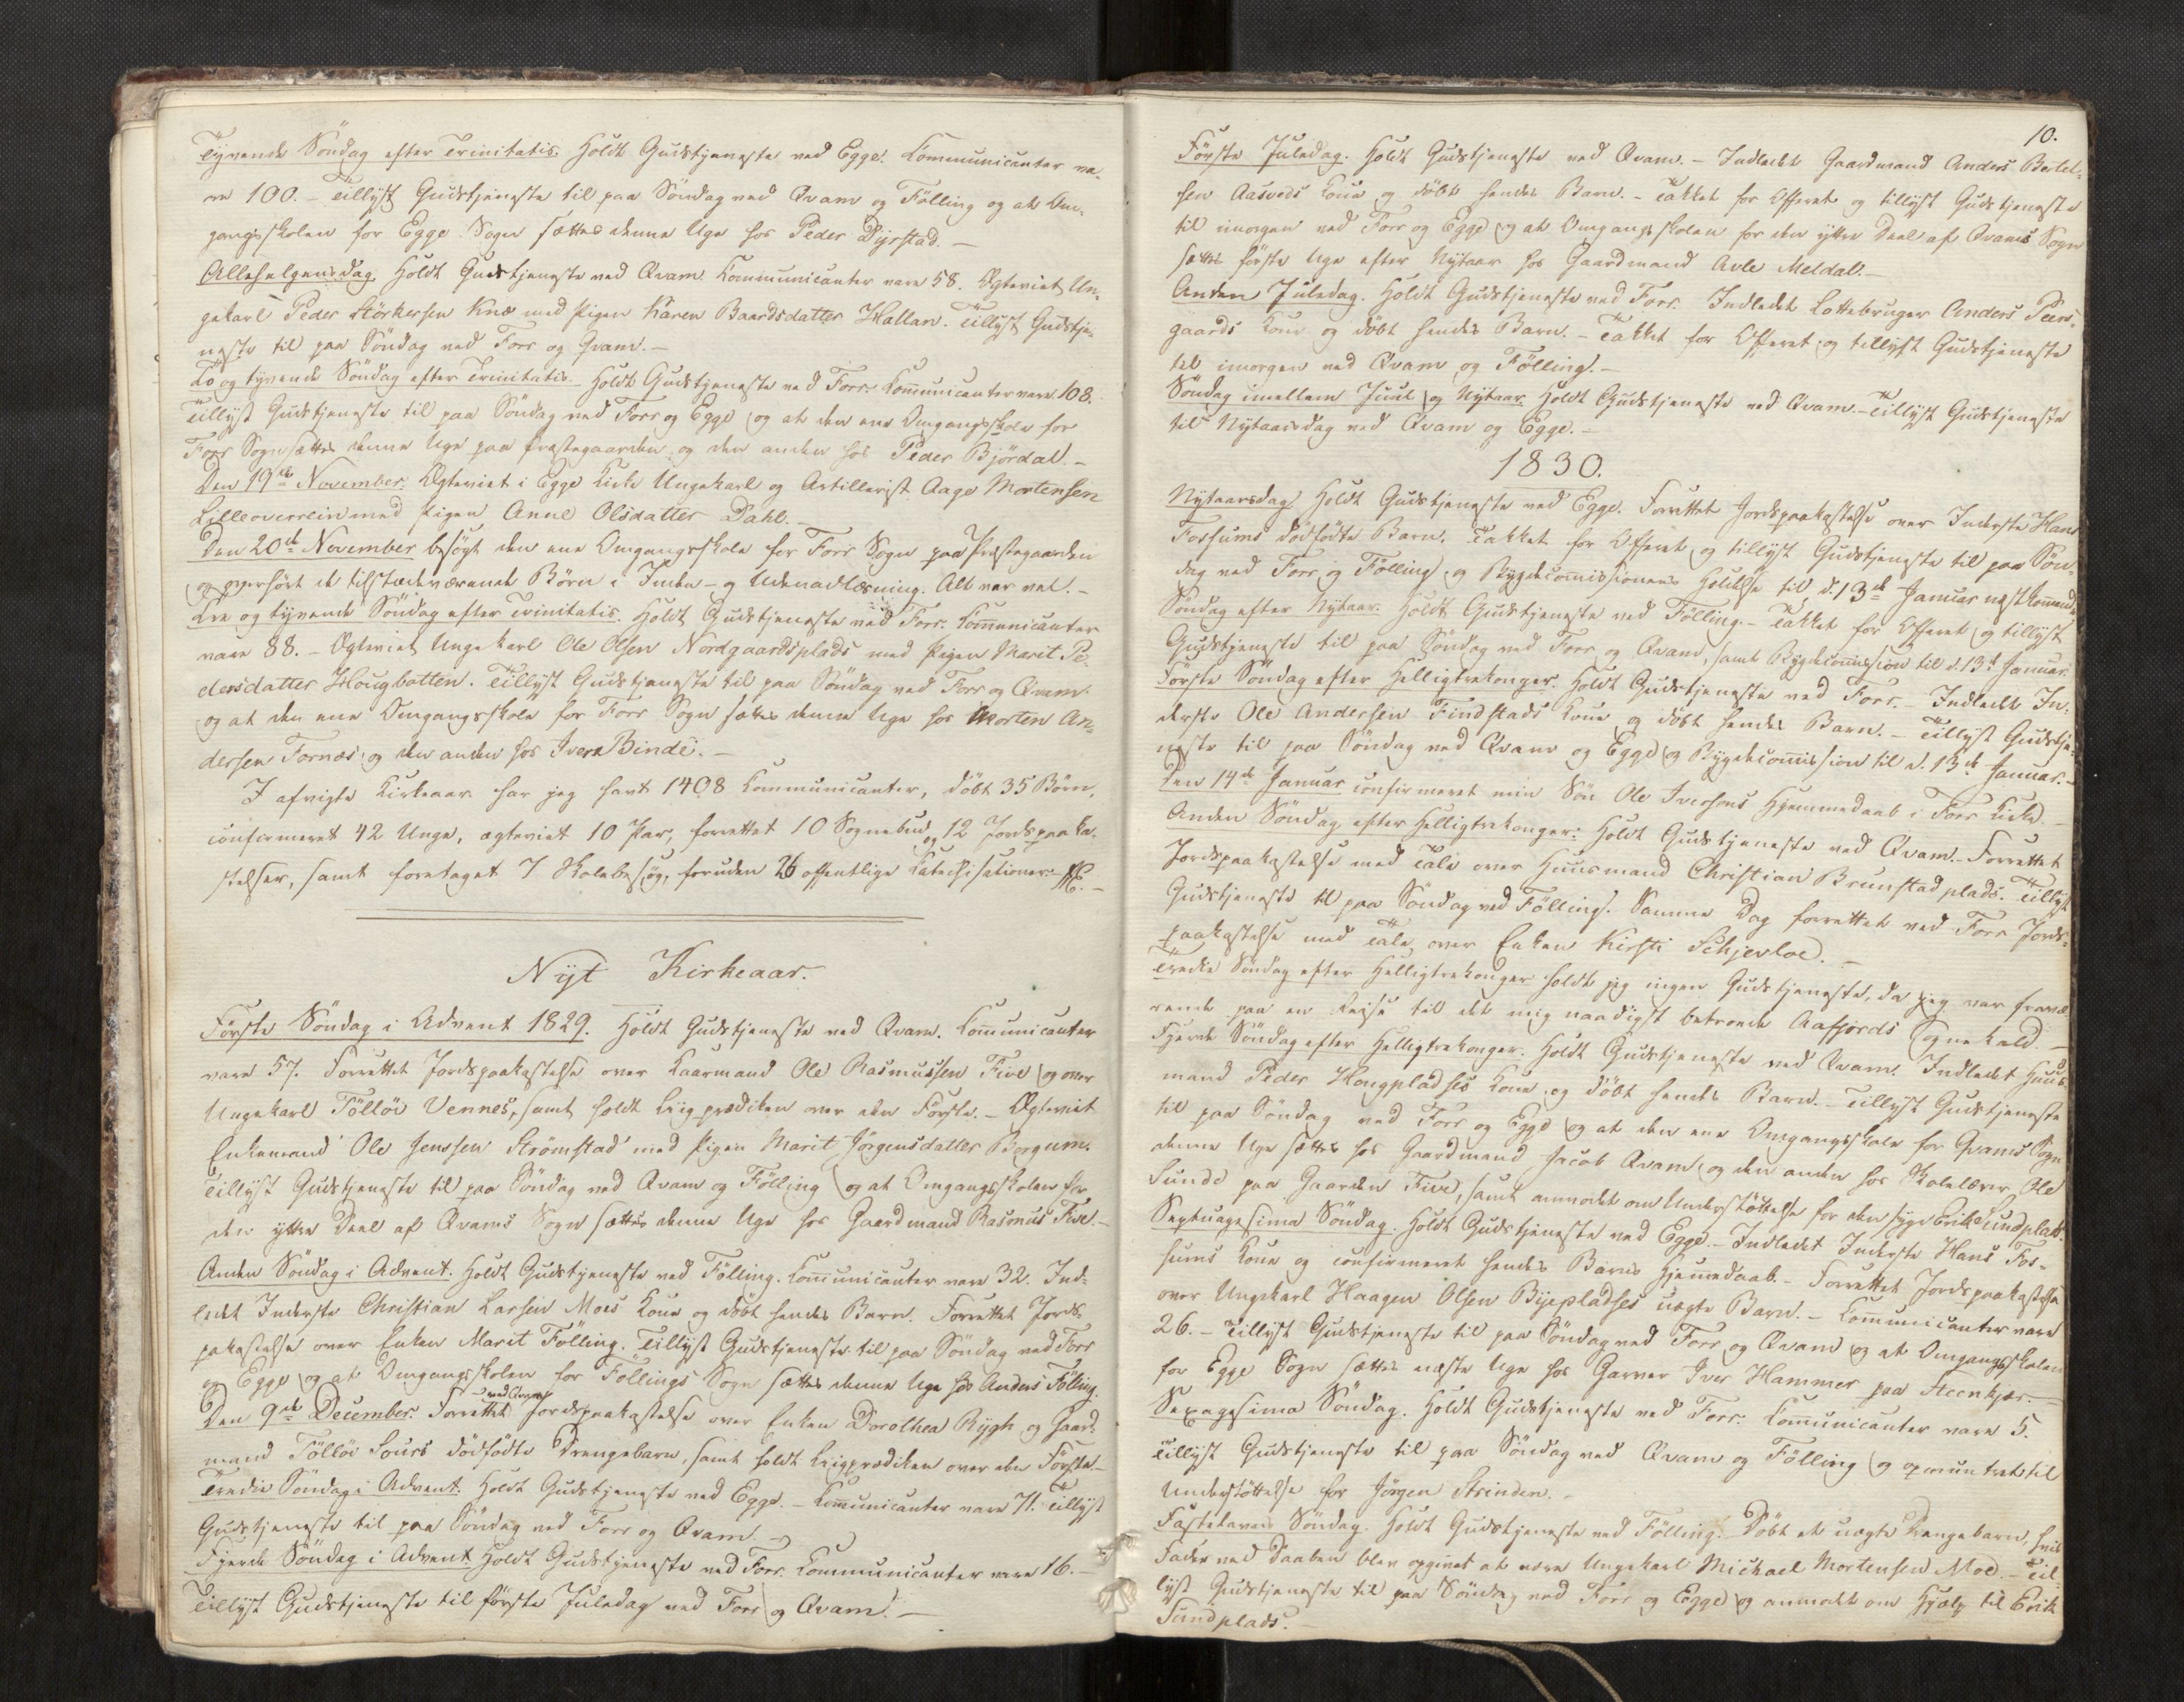 Tyvende Söndag efter Trinitatis. Holdt Gudstjeneste ved Egge. Communicanter va-
re 100. - Tillyst Gudstjeneste til paa Söndag ved Qvam og Fölling og at Om-
gangsskolen for Egge Sogn sættes denne Uge hos Peder Dyrstad. -
Allehelgensdag. Holdt Gudstjeneste ved Qvam. Communicanter vare 58. Ægteviet Un-
gekarl Peder Störkersen Knæ med Pigen Karen Baardsdatter Hallan. Tillyst Gudstje-
neste til paa Söndag ved Forr og Qvam. -
To og tyvende Söndag efter Trinitatis. Holdt Gudstjeneste ved Forr. Communicanter vare 108.
Tillyst Gudstjeneste til paa Söndag ved Forr og Egge og at den ene Omgangsskole for
Forr Sogn sættes denne Uge paa Præstegaarden og den anden hos Peder Björdal. -
Den 19de November. Ægteviet i Egge Kirke Ungekarl og Artillerist Aage Mortensen
Lilleoverrein med Pigen Anne Olsdatter Dahl. -
Den 20de November besögt den ene Omgangsskole for Forr Sogn paa Præstegaarden
og overhört de tilstædeværende Börn i Inden- og Udenadlæsning. Alt var vel. -
Tre og tyvende Söndag efter Trinitatis. Holdt Gudstjeneste ved Forr. Communicanter
vare 88. - Ægteviet Ungekarl Ole Olsen Nordgaardsplads med Pigen Marit Pe-
dersdatter Hougbotten. Tillyst Gudstjeneste til paa Söndag ved Forr og Qvam.
og at den ene Omgangsskole for Forr Sogn sættes denne Uge hos Morten An-
dersen Fornæs og den anden hos Iver Binde. -
I afvigte Kirkeaar har jeg havt 1408 Communicanter, döbt 35 Börn,
confirmeret 42 Unge, ægteviet 10 Par, forrettet 10 Sognebud og 12 Jordspaaka-
stelser, samt foretaget 7 Skolebesög, foruden 26 offentlige Catechisationer.
Nyt Kirkeaar.
Förste Söndag i Advent 1829. Holdt Gudstjeneste ved Qvam. Communicanter
vare 57. Forrettet Jordspaakastelse over Kaarmand Ole Rasmussen Five og over
Ungekarl Töllöv Vennes, samt holdt Liigprædiken over den Förste. - Ægteviet
Enkemand Ole Jenssen Strömstad med Pigen Marit Jörgensdatter Bergum.
Tillyst Gudstjeneste til paa Söndag ved Qvam og Fölling og at Omgangsskolen for
den ytre Deel af Qvams Sogn sættes denne Uge hos Gaardmand Rasmus Five. -
Anden Söndag i Advent. Holdt Gudstjeneste ved Fölling. Communicanter vare 32. Ind-
ledet Inderste Christian Larsen Moes Kone og döbt hendes Barn. Forrettet Jords-
pakastelse over Enken Marit Fölling. Tillyst Gudstjeneste til paa Söndag ved Forr
og Egge og at Omgangsskolen for Föllings Sogn sættes denne Uge hos Anders Fölling.
Den 9de December. Forrettet ved Qvam Jordspaakastelse over Enken Dorothea Rygh og Gaard-
mand Töllöv Sours dödfödte Drengebarn, samt holdt Liigprædiken over den Förste. -
Tredie Söndag i Advent. Holdt Gudstjeneste ved Egge. - Communicanter vare 71. Tillyst
Gudstjeneste til paa Söndag ved Forr og Qvam. -
Fjerde Söndag i Advent. Holdt Gudstjeneste ved Forr. Communicanter vare 16. -
Tillyst Gudstjeneste til förste Juledag ved Forr og Qvam. -
10.
Förste Juledag. Holdt Gudstjeneste ved Qvam. - Indledet Gaardmand Anders Bertel-
sen Aasveds Kone og döbt hendes Barn. - Takket for Offeret og tillyst Gudstjeneste
til imorgen ved Forr og Egge og at Omgangsskolen for den ytre Deel af Qvams Sogn
sættes förste Uge efter Nytaar hos Gaardmand Avle Meldal. -
Anden Juledag. Holdt Gudstjeneste ved Forr. Indledet Lottebruger Anders Peers-
gaards Kone og döbt hendes Barn. - Takket for Offeret og tillyst Gudstjeneste
til imorgen ved Qvam og Fölling. -
Söndag imellem Juul og Nytaar. Holdt Gudstjeneste ved Qvam. - Tillyst Gudstjeneste
til Nytaarsdag ved Qvam og Egge. -
1830.
Nytaarsdag. Holdt Gudstjeneste ved Egge. Forrettet Jordspaakastelse over Inderste Hans
Fossums dödfödte Barn. Takket for Offeret og tillyst Gudstjeneste til paa Sön-
dag ved Forr og Fölling og Bygdecommissionens Holdelse til d. 13de Januar næstkommende
Söndag efter Nytaar. Holdt Gudstjeneste ved Fölling. - Takket for Offeret og tillyst
Gudstjeneste til paa Söndag ved Forr og Qvam, samt Bygdecommission til d. 13de Januar.
Förste Söndag efter Helligtrekonger. Holdt Gudstjeneste ved Forr. - Indledet In-
derste Ole Andersen Findstads Kone og döbt hendes Barn. - Tillyst Gudstje-
neste til paa Söndag ved Qvam og Egge og Bygdecommission til d. 13de Januar. -
Den 14de Januar confirmeret min Sön Ole Iversens Hjemmedaab i Forr Kirke. -
Anden Söndag efter Helligtrekonger: Holdt Gudstjeneste ved Qvam. - Forrettet
Jordspaakastelse med Tale over Huusmand Christian Brunstadplads. Tillyst
Gudstjeneste til paa Söndag ved Fölling. Samme Dag forrettet ved Forr Jords-
paakastelse med Tale over Enken Kirsti Schjevloe. -
Tredie Söndag efter Helligtrekonger holdt jeg ingen Gudstjeneste, da jeg var fravæ-
rende paa en Reise til det mig naadigst betroede Aafjords Sognekald. -
Fjerde Söndag efter Helligtrekonger. Holdt Gudstjeneste ved Qvam. Indledet Huus-
mand Peder Hougpladses Kone og döbt hendes Barn. - Tillyst Gudstjeneste
til paa Söndag ved Forr og Egge og at den ene Omgangsskole for Qvams Sogn
denne Uge sættes hos Gaardmand Jacob Qvam og den anden hos Skolelærer Ole
Sunde paa Gaarden Five, samt anmodet om Understöttelse for den syge Erik Sundplads.
Septuagesima Söndag. Holdt Gudstjeneste ved Egge. - Indledet Inderste Hans Fos-
sums Kone og confirmeret hendes Barns Hjemmedaab. - Forrettet Jordspaakastelse
over Ungekarl Haagen Olsen Byepladses uægte Barn. - Communicanter vare
26. - Tillyst Gudstjeneste til paa Söndag ved Forr og Qvam og at Omgangsskolen
for Egge Sogn sættes næste Uge hos Garver Iver Hammer paa Steenkjær. -
Sexagesima Söndag. Holdt Gudstjeneste ved Forr. Communicanter vare 5.
Tillyst Gudstjeneste til paa Söndag ved Qvam og Fölling og opmuntret til
Understöttelse for Jörgen Strinden. -
Fastelavns Söndag. Holdt Gudstjeneste ved Fölling. Döbt et uægte Drengebarn, hvis
Fader ved Daaben blev opgivet at være Ungekarl Michael Mortensen Moe. - Til-
lyst Gudstjeneste til paa Söndag ved Forr og Egge og anmodet om Hjælp til Erik
Sundplads. -